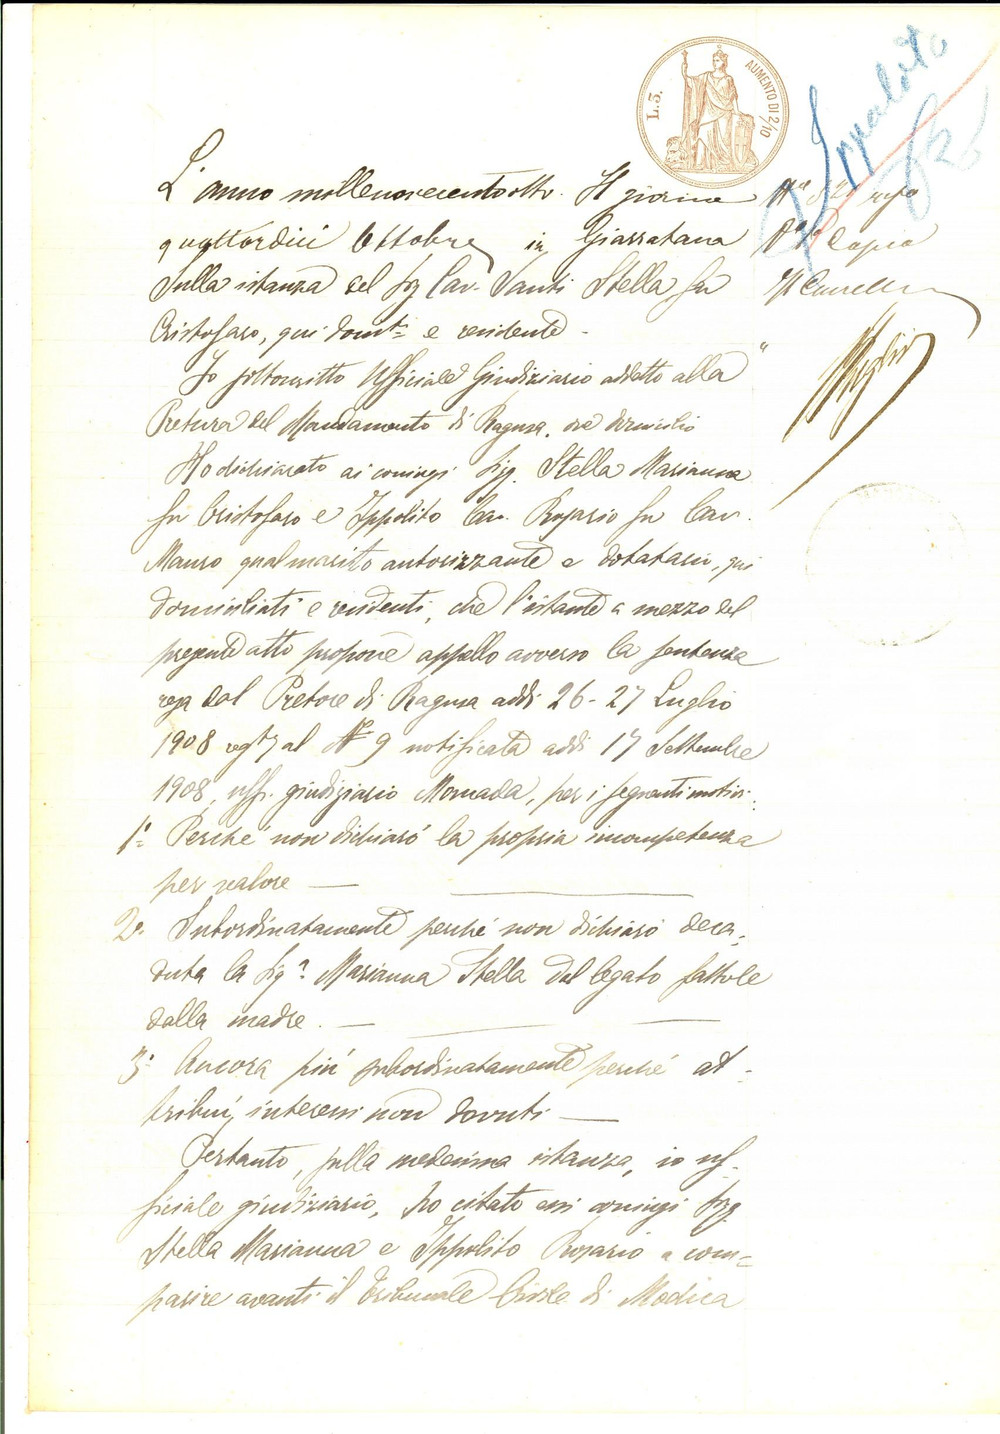 L. 3.
AUMENTO DI 2/10
Ippolito
L'anno millenovecentootto. Il giorno
quattordici Ottobre in Giarratana
Sulla istanza del Sig Cav. Santi Stella fu
Cristofaro, qui domto e residente -
Io sottoscritto Ufficiale Giudiziario addetto alla
Pretura del Mandamento di Ragusa, ove domicilio
Ho dichiarato ai coniugi Sigg. Stella Marianna
fu Cristofaro e Ippolito Cav. Rosario fu Cav.
Mauro qual marito autorizzante e dotatario, qui
domiciliati e residenti, che l'istante a mezzo del
presente atto propone appello avverso la sentenza
resa dal Pretore di Ragusa addì 26-27 Luglio
1908 regta al No 9 notificata addì 17 Settembre
1908, uff. giudiziario Moncada, per i seguenti motivi:
1o= Perché non dichiarò la propria incompetenza
per valore —
2o Subordinatamente perché non dichiarò deca-
duta la Siga Marianna Stella dal legato fattole
dalla madre. —
3o Ancora più subordinatamente perché at-
tribuì interessi non dovuti —
Pertanto, sulla medesima istanza, io uf-
ficiale giudiziario, ho citato essi coniugi Sigg.
Stella Marianna e Ippolito Rosario a com=
parire avanti il Tribunale Civile di Modica
Copia